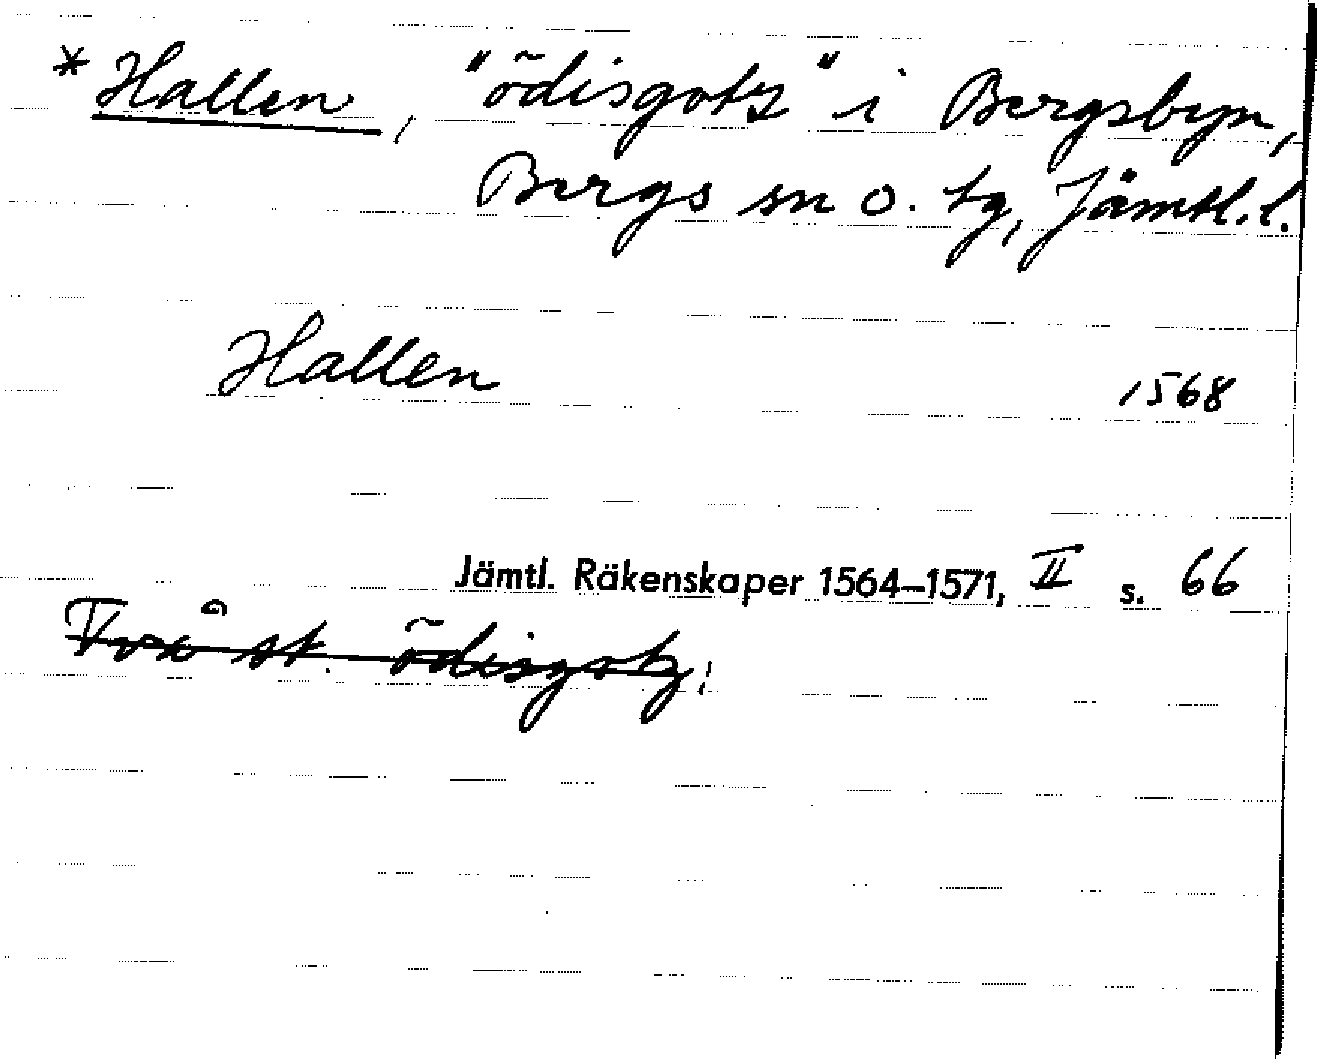 *Hallen, "õdisgotz" i Bergsbyn,
Bergs sn o. tg, Jämtl.l.
Hallen 1568
Jämtl. Räkenskaper 1564–1571, II s. 66
Två st. õdisgotz.